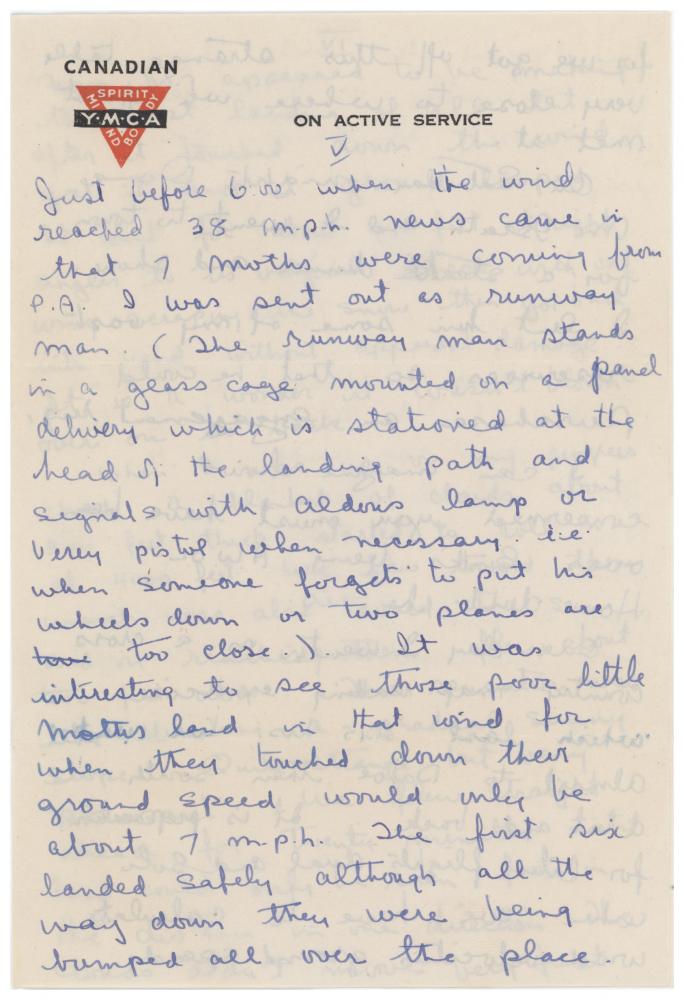 CANADIAN
SPIRIT
Y·M·C·A
MIND
BODY
ON ACTIVE SERVICE
V
Just before 6.00 when the wind
reached 38 m.p.h. news came in
that 7 moths were coming from
P.A. I was sent out as runway
man. (The runway man stands
in a glass cage mounted on a panel
delivery which is stationed at the
head of the landing path and
signals with aldous lamp or
Verey pistol when necessary i.e.
when someone forgets to put his
wheels down or two planes are
too close.). It was
interesting to see those poor little
moths land in that wind for
when they touched down their
ground speed would only be
about 7 m.p.h. The first six
landed safely although all the
way down they were being
bumped all over the place.